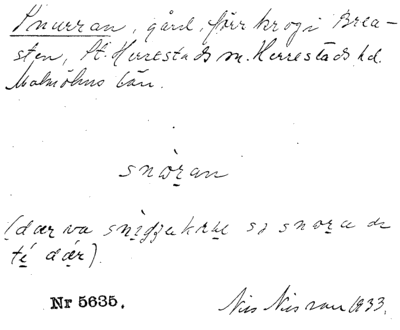 Snurran, gård, förr krog i Brea-
sten, St. Herrestads sn. Herrestads hd.
Malmöhus län.
snωran
(dær va sni̱dʒakrω sɔ snωra di
tí dǽr).
Nr 5635.
Nils Nilsson 1933.